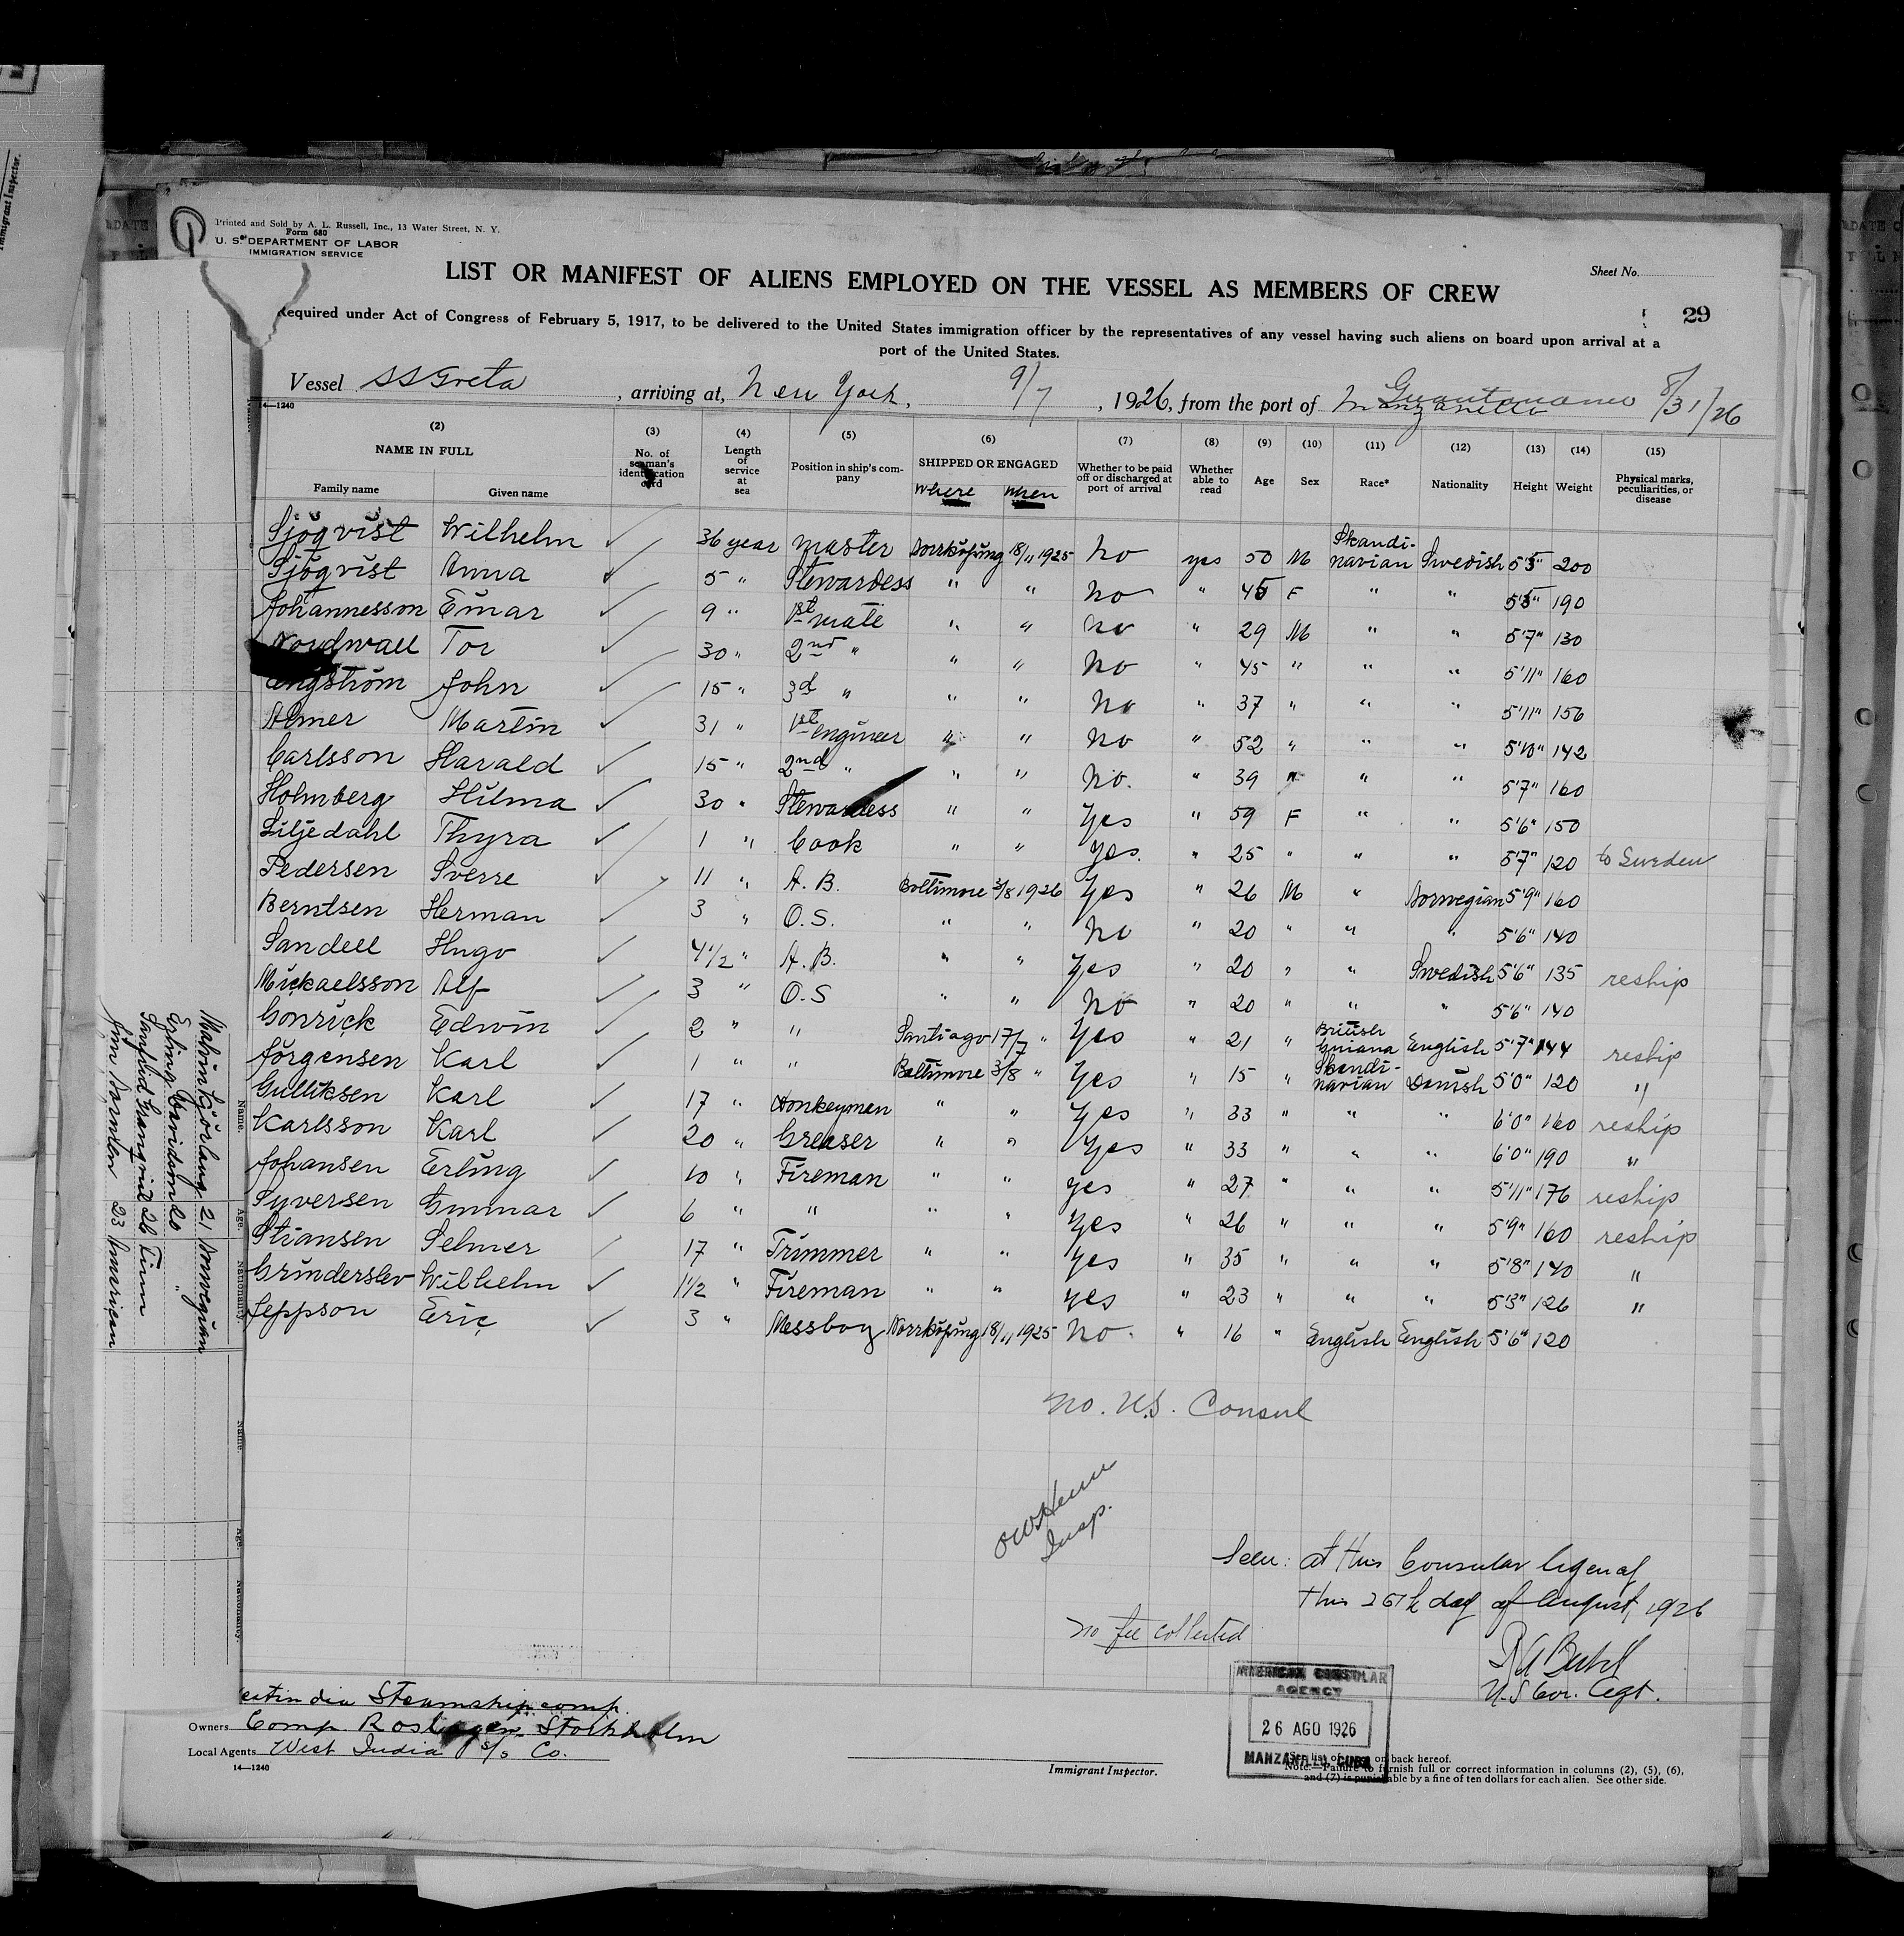 Printed and Sold by A. L. Russell, Inc., 13 Water Street, N. Y.
Form 680
U. S. DEPARTMENT OF LABOR
IMMIGRATION SERVICE
Sheet No.
LIST OR MANIFEST OF ALIENS EMPLOYED ON THE VESSEL AS MEMBERS OF CREW
29
Required under Act of Congress of February 5, 1917, to be delivered to the United States immigration officer by the representatives of any vessel having such aliens on board upon arrival at a
port of the United States.
Vessel SS Greta, arriving at, New York, 9/7, 1926, from the port of Manzanillo Guantanamo 8/31/26
14—1240
(2) (3) (4) (5) (6) (7) (8) (9) (10) (11) (12) (13) (14) (15)
NAME IN FULL No. of seaman's identification card Length of service at sea Position in ship's company SHIPPED OR ENGAGED Whether to be paid off or discharged at port of arrival Whether able to read Age Sex Race* Nationality Height Weight Physical marks, peculiarities, or disease
Family name Given name Where When
Sjöqvist Wilhelm ✓ 36 year Master Norrköping 18/11 1925 No yes 50 M Skandinavian Swedish 5'5" 200
Sjöqvist Anna ✓ 5 " Stewardess " " No " 45 F " " 5'5" 190
Johannesson Einar ✓ 9 " 1st mate " " No " 29 M " " 5'7" 130
Nordwall Tor ✓ 30 " 2nd " " " No " 45 " " " 5'11" 160
Engström John ✓ 15 " 3d " " " No " 37 " " " 5'11" 156
Almer Martin ✓ 31 " 1st engineer " " No " 52 " " " 5'10" 142
Carlsson Harald ✓ 15 " 2nd " " " No. " 39 " " " 5'7" 160
Holmberg Hilma ✓ 30 " Stewardess " " Yes " 59 F " " 5'6" 150
Liljedahl Thyra ✓ 1 " Cook " " Yes. " 25 " " " 5'7" 120 to Sweden
Pedersen Sverre ✓ 11 " A. B. Baltimore 3/8 1926 Yes " 26 M " Norwegian 5'9" 160
Berntsen Herman ✓ 3 " O.S. " " No " 20 " " " 5'6" 140
Sandell Hugo ✓ 4 1/2 " A. B. " " Yes " 20 " " Swedish 5'6" 135 reship
Mickaelsson Alf ✓ 3 " O.S " " No " 20 " " " 5'6" 140
Gonrick Edwin ✓ 2 " " Santiago 17/7 " Yes " 21 " British Guiana English 5'7" 144 reship
Jörgensen Karl ✓ 1 " " Baltimore 3/8 " Yes " 15 " Skandinavian Danish 5'0" 120 "
Gulliksen Karl ✓ 17 " Donkeyman " " Yes " 33 " " " 6'0" 160 reship
Karlsson Karl ✓ 20 " Greaser " " Yes " 33 " " " 6'0" 190 "
Johansen Erling ✓ 10 " Fireman " " yes " 27 " " " 5'11" 176 reship
Syversen Gunnar ✓ 6 " " " " Yes " 26 " " " 5'9" 160 reship
Stiansen Selmer ✓ 17 " Trimmer " " Yes " 35 " " " 5'8" 140 "
Grinderslev Wilhelm ✓ 1 1/2 " Fireman " " yes " 23 " " " 5'3" 126 "
Jeppson Eric ✓ 3 " Messboy Norrköping 18/11 1925 No. " 16 " English English 5'6" 120
No. U.S. Consul
Insp.
Seen: at this Consular Agency
this 26th day of August, 1926
No fee collected
U.S. Con. Agt.
AMERICAN CONSULAR
AGENCY
26 AGO 1926
MANZANILLO, CUBA
Steamship comp.
Owners Comp. Roslagen Stockholm
Local Agents West India S/S Co.
14—1240
Immigrant Inspector.
See list of races on back hereof.
Note.—Failure to furnish full or correct information in columns (2), (5), (6),
and (7) is punishable by a fine of ten dollars for each alien. See other side.
Name. Age. Nationality.
Malvin 21 Norwegian
Erling Davidsen 20 "
Sanfrid 26 Finn
23 American
Name. Age. Nationality.
Immigrant Inspector.